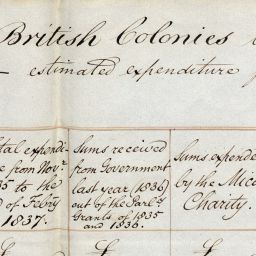 British Colonies
estimated expenditure
expendi-
from Novr.
35 to the
of Febry
1837.
Sums received
from Government
last year (1836)
out of the Parly.
Grants of 1835
and 1836.
Sums expende
by the Mico
Charity.
£ £ £